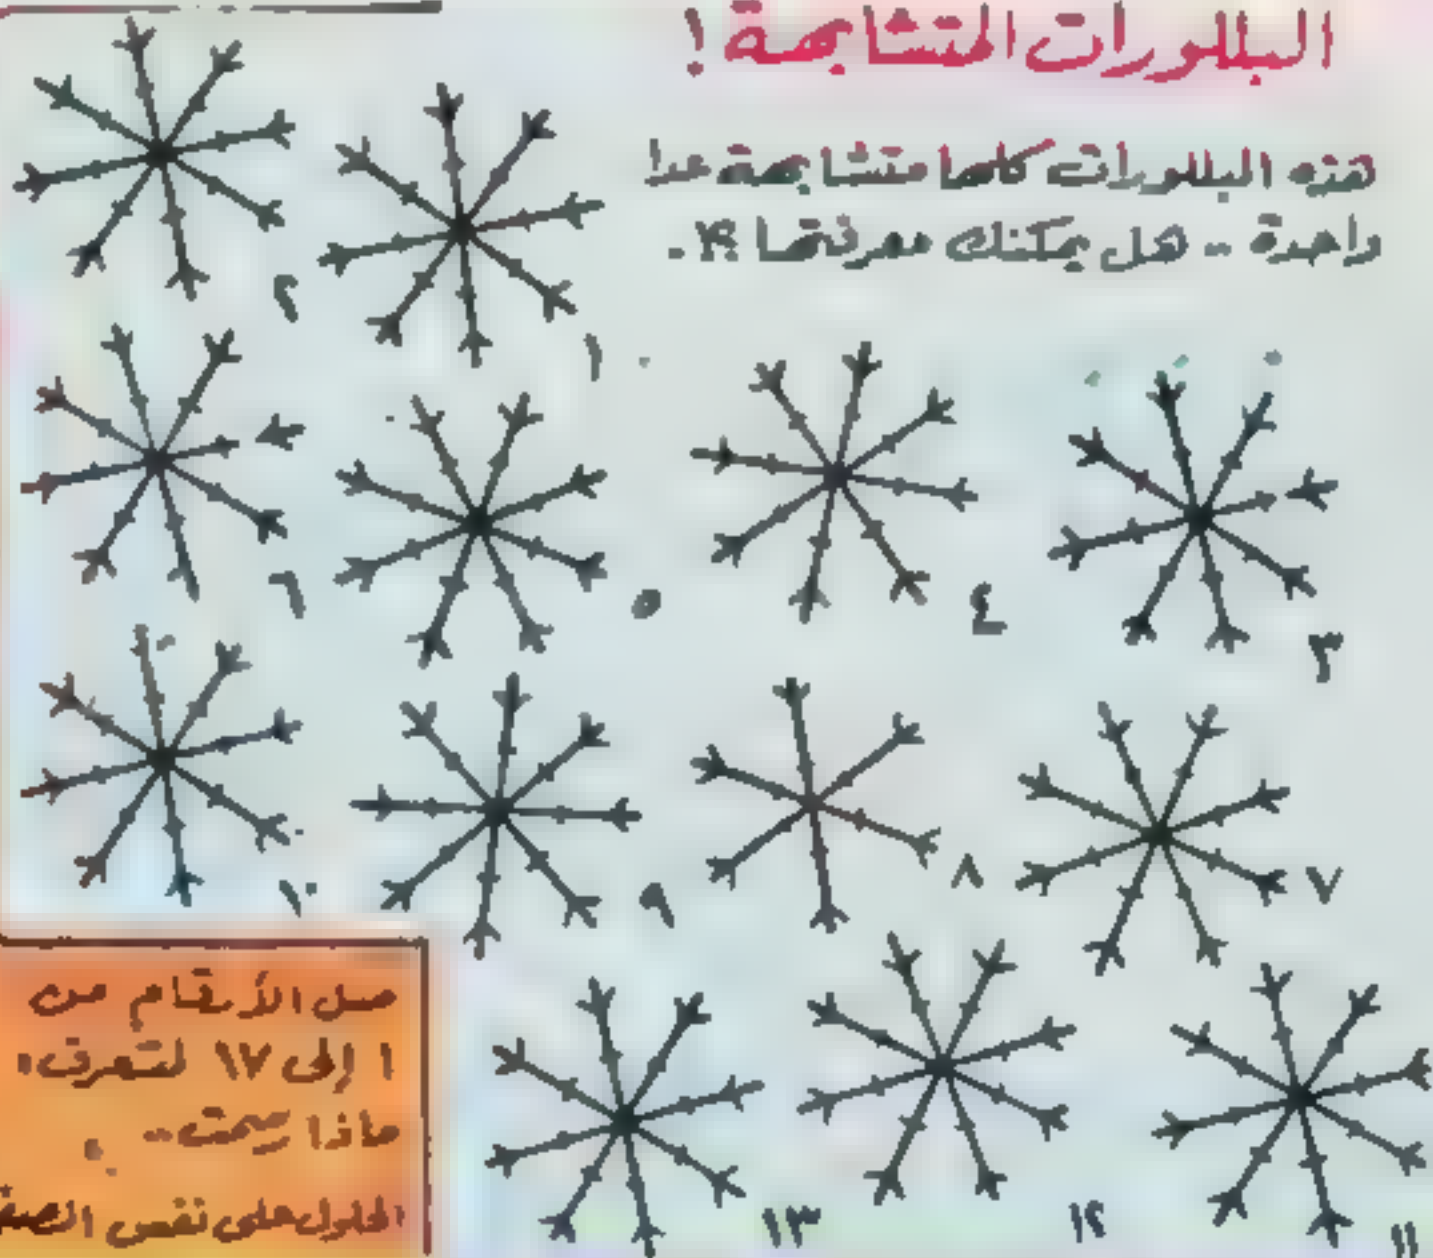 البللورات المتشابهة !
هذه البللورات كلها متشابهة عدا
واحدة .. هل يمكنك معرفتها ؟!.
٢
١
٦
٥
٤
٣
١٠
٩
٨
٧
١٣
١٢
١١
صل الأرقام من
١ إلى ١٧ لتعرف
ماذا
الحلول على نفس